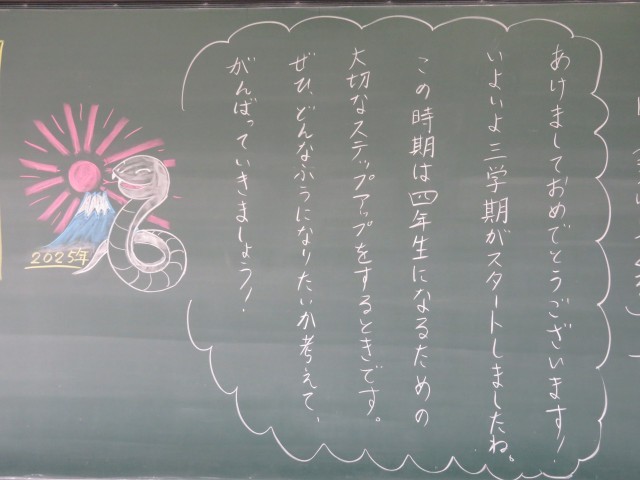 あけましておめでとうございます！
いよいよ三学期がスタートしましたね。
この時期は四年生になるための
大切なステップアップをするときです。
ぜひ、どんなふうになりたいか考えて、
がんばっていきましょう！
2025年